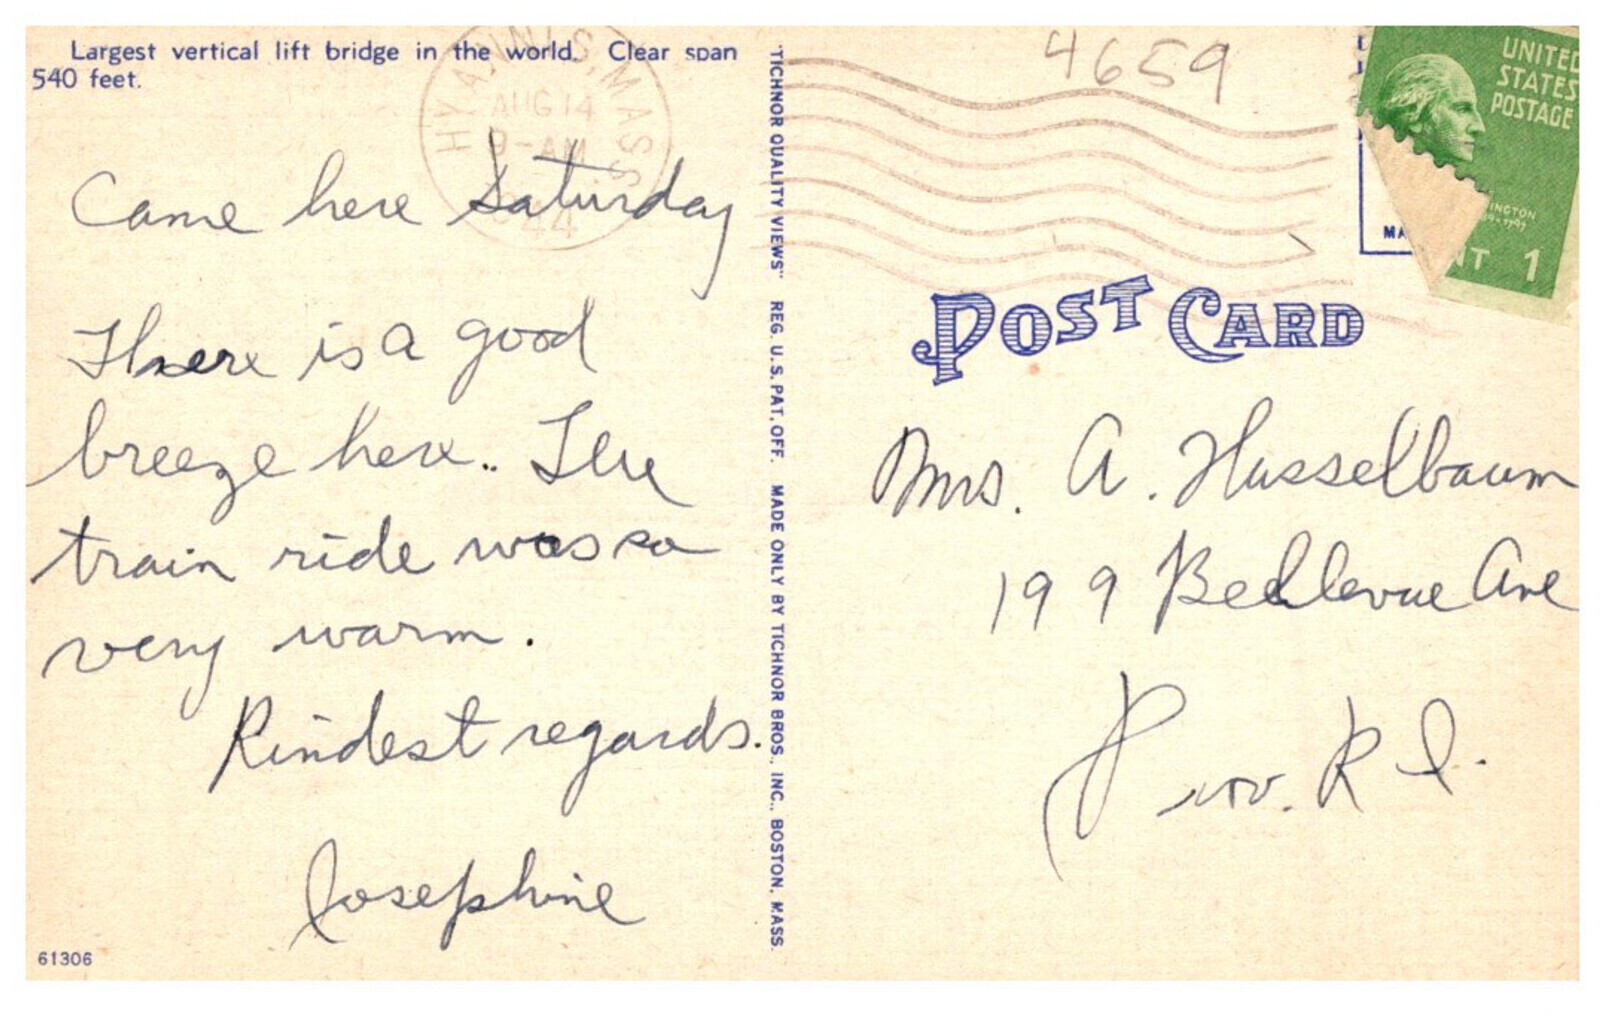 Largest vertical lift bridge in the world. Clear span
540 feet.
HYANNIS, MASS
AUG 14
9-AM
44
4659
UNITED
STATES
POSTAGE
INGTON
NT 1
MA
POST CARD
Came here Saturday
There is a good
breeze here.. The
train ride was so
very warm.
Kindest regards.
Josephine
61306
"TICHNOR QUALITY VIEWS" REG. U.S. PAT. OFF. MADE ONLY BY TICHNOR BROS., INC., BOSTON, MASS.
Mrs. A. Husselbaum
199 Bellevue Ave
Prov. R I.